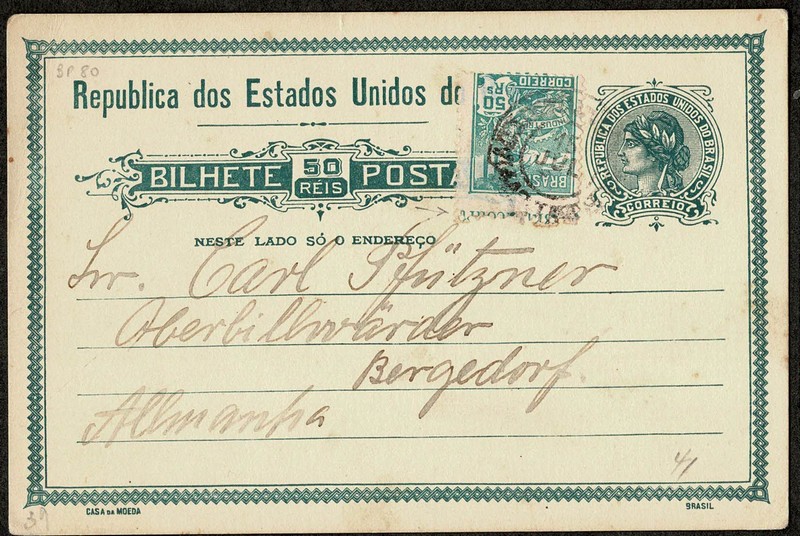 BP 80
Republica dos Estados Unidos do
BILHETE 50 RÉIS POSTA
NESTE LADO SÓ O ENDEREÇO
CORREIO
50 RS
INDUSTRIA
BRASIL
REPUBLICA DOS ESTADOS UNIDOS DO BRASIL
CORREIO
Snr. Carl Pfützner
Oberbillwärder
Bergedorf.
Allmanha
41
CASA DA MOEDA
BRASIL